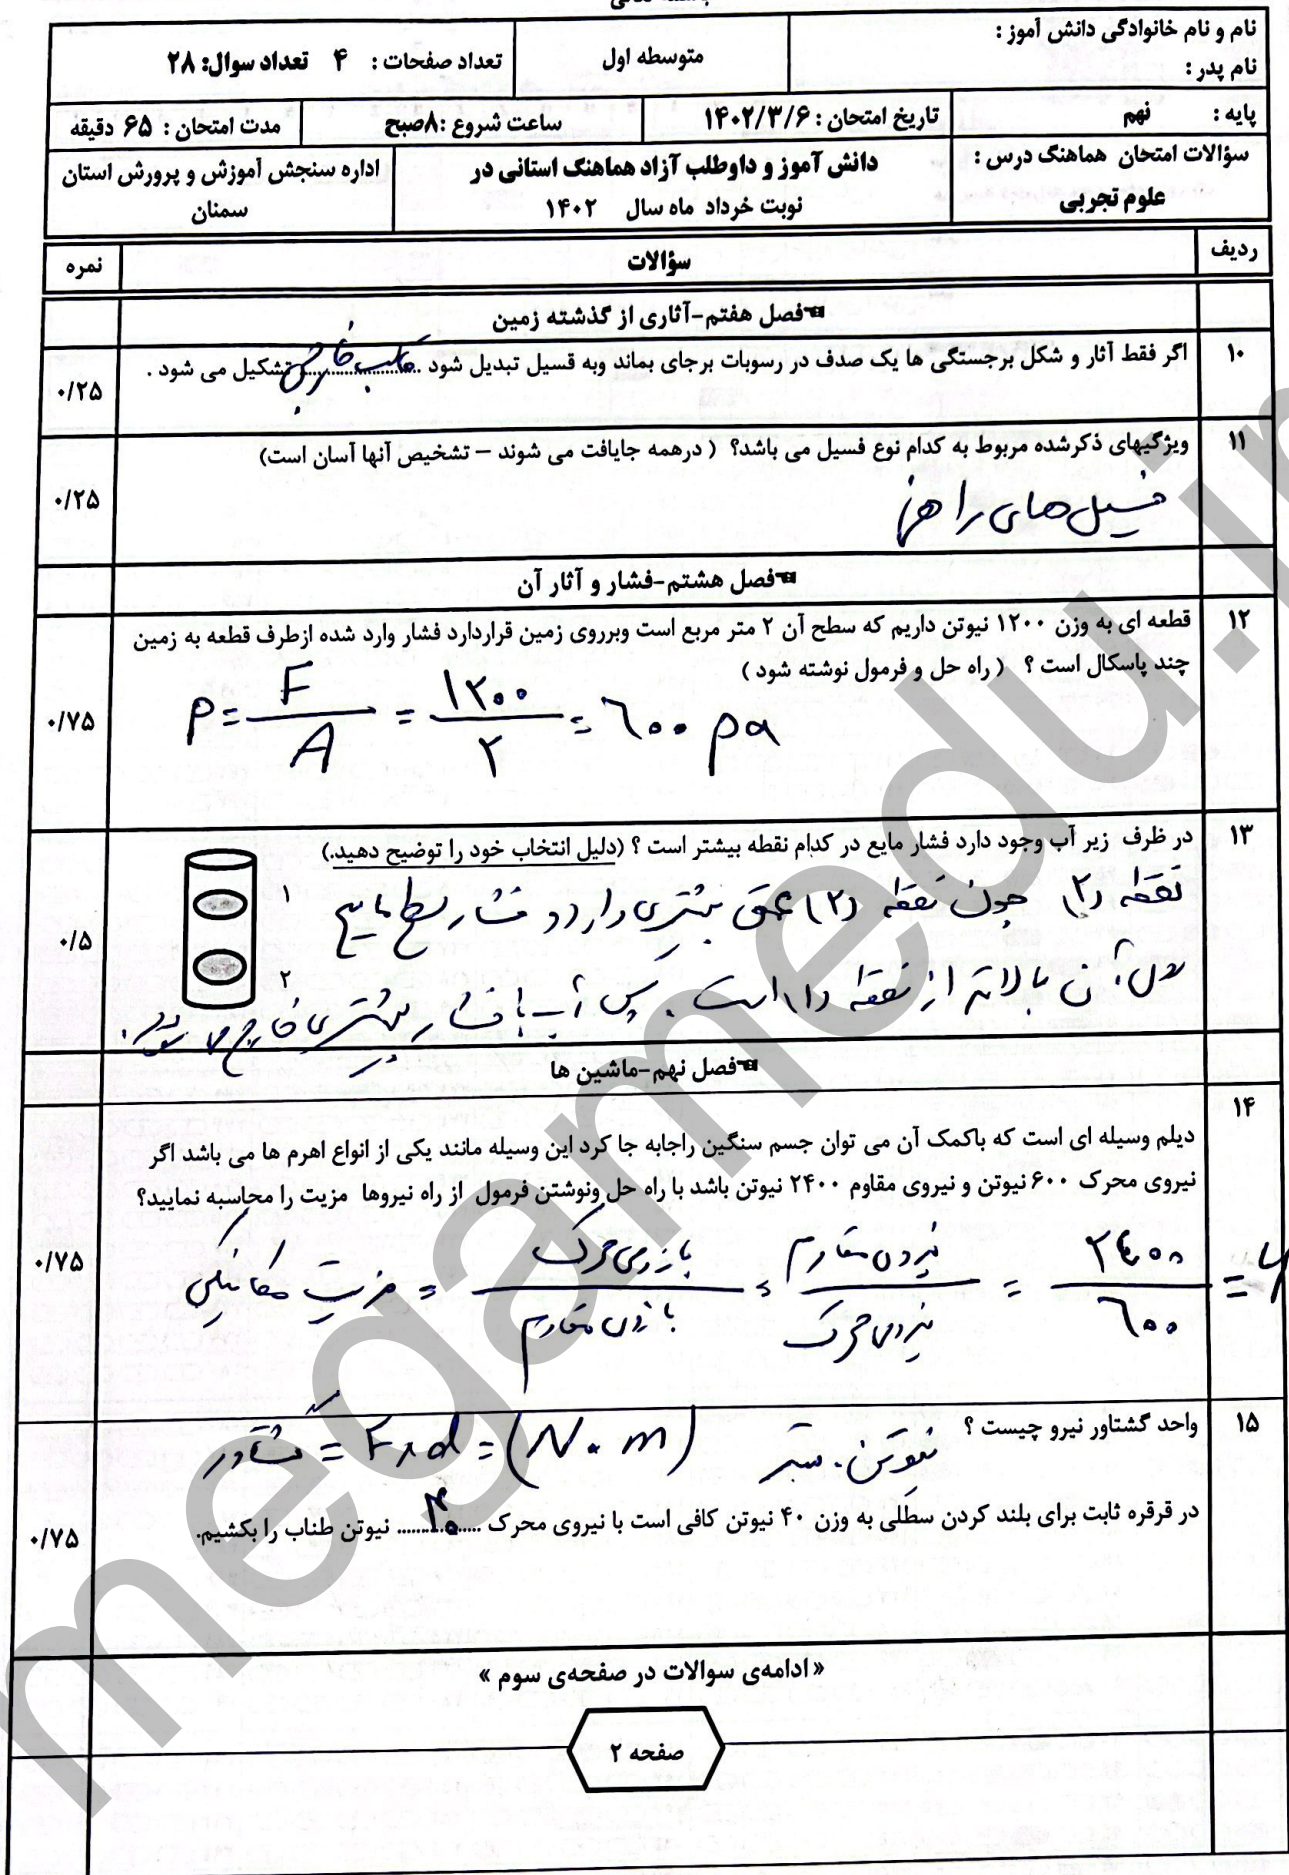 نام و نام خانوادگی دانش آموز :
نام پدر :
متوسطه اول
تعداد صفحات : ۴ تعداد سوال: ۲۸
پایه : نهم
تاریخ امتحان : ۱۴۰۲/۳/۶
ساعت شروع :۸صبح
مدت امتحان : ۶۵ دقیقه
سؤالات امتحان هماهنگ درس :
علوم تجربی
دانش آموز و داوطلب آزاد هماهنگ استانی در
نوبت خرداد ماه سال ۱۴۰۲
اداره سنجش آموزش و پرورش استان
سمنان
ردیف
سؤالات
نمره
فصل هفتم-آثاری از گذشته زمین
۱۰
اگر فقط آثار و شکل برجستگی ها یک صدف در رسوبات برجای بماند وبه فسیل تبدیل شود قالب خارجی تشکیل می شود .
۰/۲۵
۱۱
ویژگیهای ذکرشده مربوط به کدام نوع فسیل می باشد؟ ( درهمه جایافت می شوند – تشخیص آنها آسان است)
فسیل های راهنما
۰/۲۵
فصل هشتم-فشار و آثار آن
۱۲
قطعه ای به وزن ۱۲۰۰ نیوتن داریم که سطح آن ۲ متر مربع است وبرروی زمین قراردارد فشار وارد شده ازطرف قطعه به زمین
چند پاسکال است ؟ ( راه حل و فرمول نوشته شود )
P = F / A = ۱۲۰۰ / ۲ = ۶۰۰ pa
۰/۷۵
۱۳
در ظرف زیر آب وجود دارد فشار مایع در کدام نقطه بیشتر است ؟ (دلیل انتخاب خود را توضیح دهید.)
نقطه (۲) چون نقطه (۲) عمق بیشتری دارد و فشار سطح مایع
روی آن بالاتر از نقطه (۱) است . پس آب با فشار بیشتری خارج می شود.
۱
۲
۰/۵
فصل نهم-ماشین ها
۱۴
دیلم وسیله ای است که باکمک آن می توان جسم سنگین راجابه جا کرد این وسیله مانند یکی از انواع اهرم ها می باشد اگر
نیروی محرک ۶۰۰ نیوتن و نیروی مقاوم ۲۴۰۰ نیوتن باشد با راه حل ونوشتن فرمول از راه نیروها مزیت را محاسبه نمایید؟
مزیت مکانیکی = بازوی محرک / بازوی مقاوم = نیروی مقاوم / نیروی محرک = ۲۴۰۰ / ۶۰۰ = ۴
۰/۷۵
۱۵
واحد گشتاور نیرو چیست ؟ نیوتن . متر گشتاور = F × d = (N . m)
در قرقره ثابت برای بلند کردن سطلی به وزن ۴۰ نیوتن کافی است با نیروی محرک ۴۰ نیوتن طناب را بکشیم.
۰/۷۵
« ادامه‌ی سوالات در صفحه‌ی سوم »
صفحه ۲
megamedu.ir